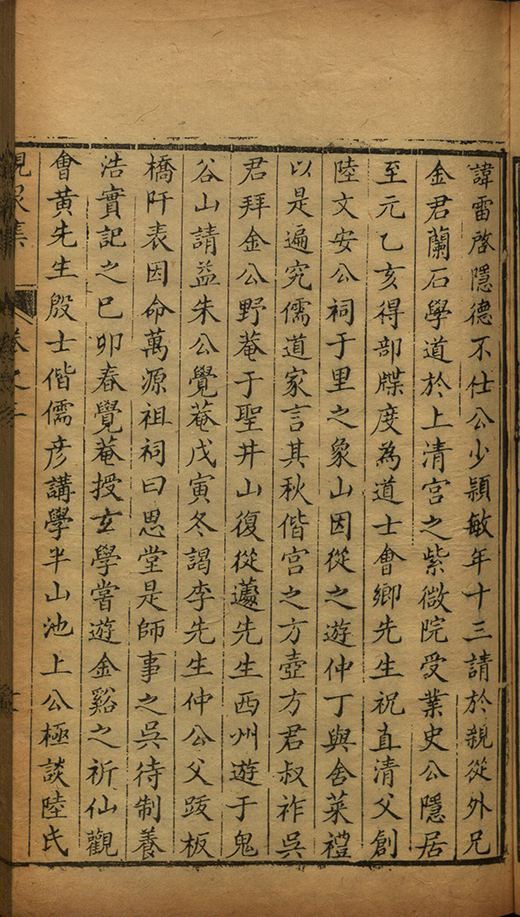 諱雷啓隱德不仕公少穎敏年十三請於親從外兄
金君蘭石學道於上清宮之紫微院受業史公隱居
至元乙亥得部牒度為道士會鄉先生祝直清父創
陸文安公祠于里之象山因從之遊仲丁與舍菜禮
以是遍究儒道家言其秋偕宮之方壺方君叔祚吳
君拜金公野菴于聖井山復從蘧先生西州遊于鬼
谷山請益朱公覺菴戊寅冬謁李先生仲公父跋板
橋阡表因命萬源祖祠曰思堂是師事之吳待制養
浩實記之巳卯春覺菴授玄學嘗遊金谿之祈仙觀
會黃先生殷士偕儒彥講學半山池上公極談陸氏
峴泉集 卷之